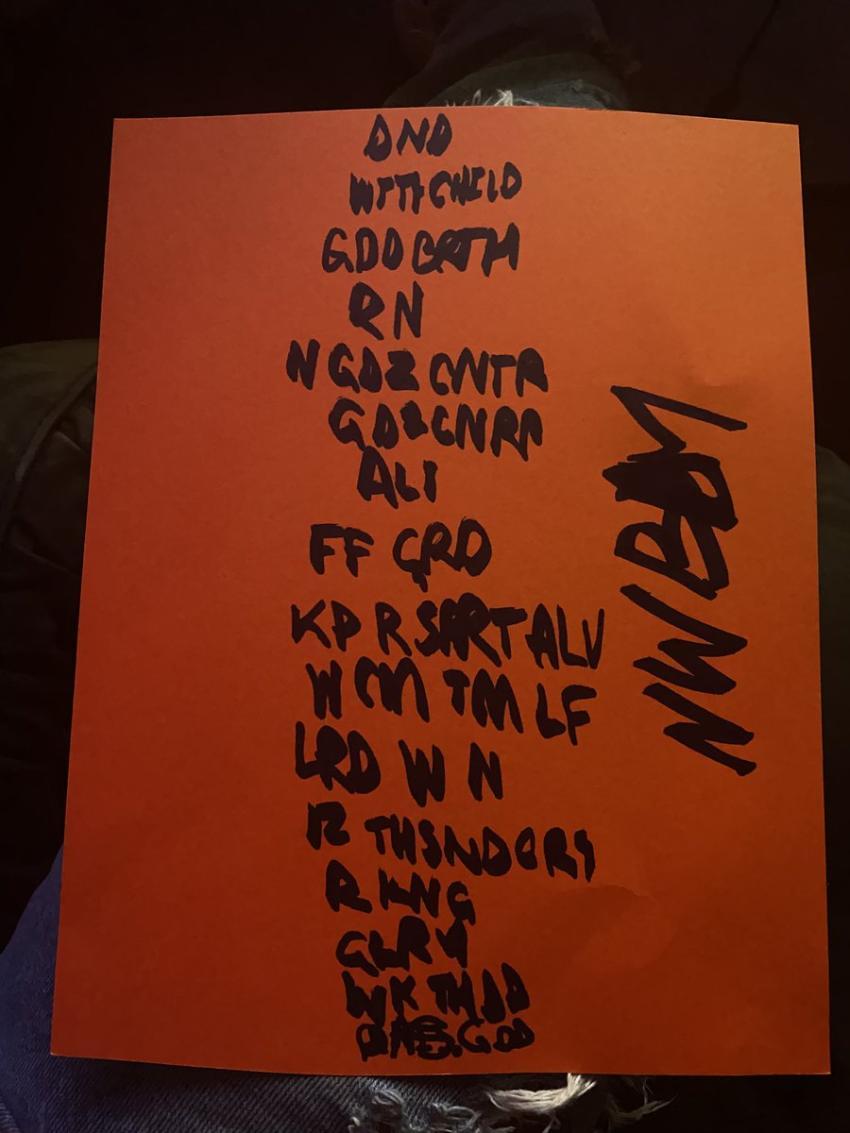 DND
WITHCHILD
GDDBRTH
RN
N GDZ CNTR
GDZCNRN
ALI
FF GRD
KP R SPRT ALV
W CM TM LF
LRD W N
R THSNDCRS
R KNG
GLRY
WK THDD
GOD
NWBDM